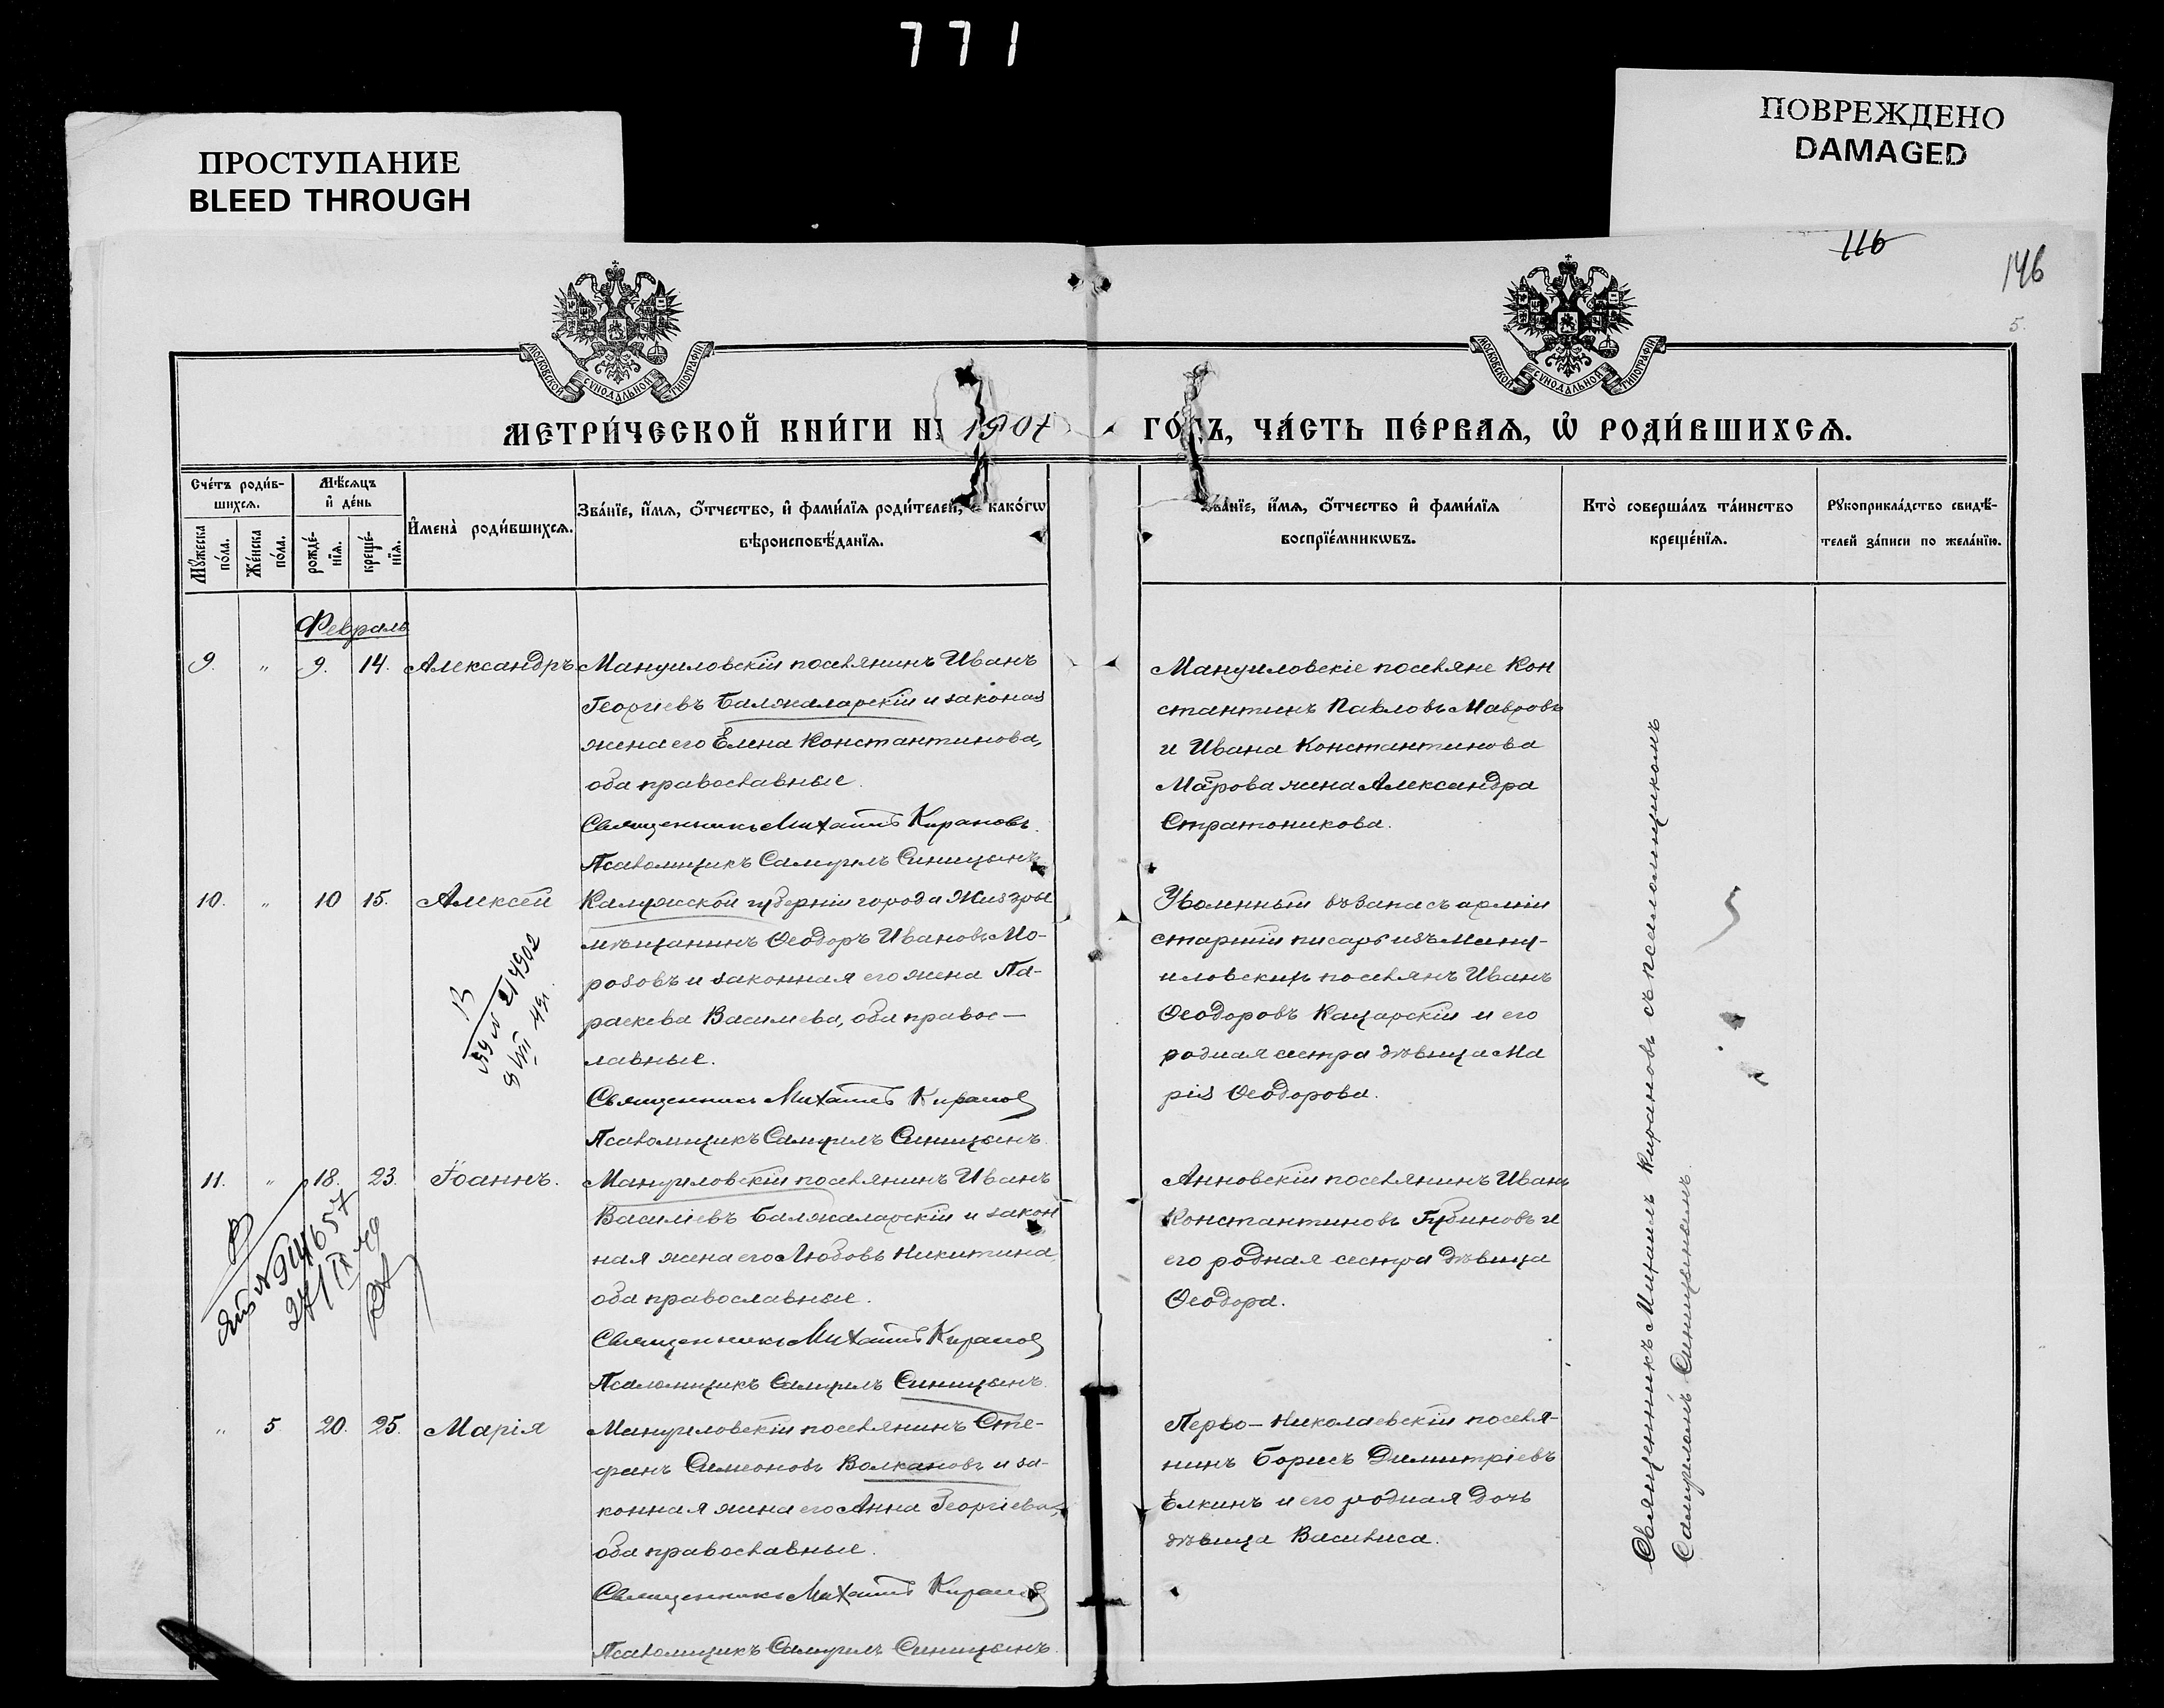 771
ПРОСТУПАНИЕ
BLEED THROUGH
ПОВРЕЖДЕНО
DAMAGED
116
146
5.
МОСКОВСКОЙ СУНОДАЛЬНОЙ ТИПОГРАФІИ
МОСКОВСКОЙ СУНОДАЛЬНОЙ ТИПОГРАФІИ
МЕТРИ́ЧЕСКОЙ КНИ́ГИ Н 1907
ГО́ДЪ, ЧА́СТЬ ПЕ́РВАѦ, Ѡ҆ РОДИ́ВШИХСѦ.
Сче́тъ роди́в-
шихсѧ.
Мꙋ́жеска
по́ла.
Же́нска
по́ла.
Мѣ́сѧцъ
и҆ де́нь
рожде́-
нїѧ.
креще́-
нїѧ.
И҆мена̀ роди́вшихсѧ.
Зва́нїе, и҆́мѧ, ѻ҆́тчество, и҆ фами́лїѧ роди́телей, како́гѡ
вѣроисповѣ́данїѧ.
Зва́нїе, и҆́мѧ, ѻ҆́тчество и҆ фами́лїѧ
воспрїе́мникѡвъ.
Кто̀ соверша́лъ та́инство
креще́нїѧ.
Рꙋкоприкла́дство свидѣ́-
телей за́писи по жела́нїю.
Февраль
9. " 9. 14. Александръ
Мануиловскій поселянинъ Иванъ
Георгіевъ Балжаларскій и законая
жена его Елена Константинова,
оба православные.
Священникъ Михаилъ Кирановъ.
Псаломщикъ Самуилъ Синицынъ
Мануиловскіе поселяне Кон
стантинъ Павловъ Мавровъ
и Ивана Константинова
Маврова жена Александра
Стратоникова.
10. " 10 15. Алексѣй
Калужской губерніи города Жиздры
мѣщанинъ Ѳеодоръ Ивановъ Мо-
розовъ и законная его жена Па-
раскева Василиева, оба правос-
лавные.
Священникъ Михаилъ Киранов
Псаломщикъ Самуилъ Синицынъ.
Уволенный въ запасъ арміи
старшій писарь изъМану-
иловскихъ поселянъ Иванъ
Ѳеодоровъ Кацарскій и его
родная сестра дѣвица Ма
рія Ѳеодорова.
11. " 18. 23. Іоаннъ.
Мануиловскій поселянинъ Иванъ
Василіевъ Балжаларскій и закон
ная жена его Любовь Никитина
оба православные.
Священникъ Михаилъ Киранов
Псаломщикъ Самуилъ Синицынъ.
Анновскій поселянинъ Иванъ
Константиновъ Губиновъ и
его родная сестра дѣвица
Ѳеодора.
" 5. 20. 25. Марія
Мануиловскій поселянинъ Сте-
фанъ Симеоновъ Волкановъ и за-
конная жена его Анна Георгіева,
оба православные.
Священникъ Михаилъ Киранов
Псаломщикъ Самуилъ Синицынъ.
Перво-Николаевскій поселя-
нинъ Борисъ Димитріевъ
Елкинъ и его родная дочь
дѣвица Василиса.
Священникъ Михаилъ Кирановъ съ псаломщикомъ
Самуиломъ Синицынымъ.